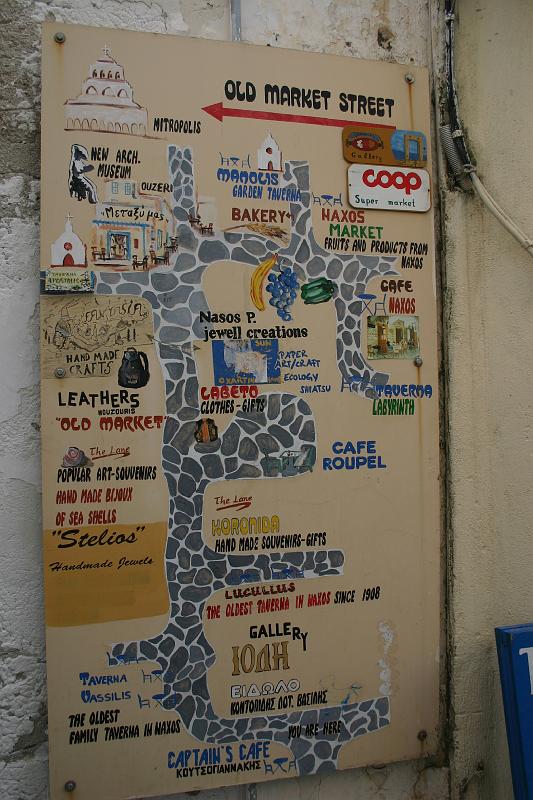 OLD MARKET STREET
MITROPOLIS
Gallery
coop
Super market
NEW ARCH.
MUSEUM
OUZERI
"Μεταξύ μας"
MANOLIS
GARDEN TAVERNA
BAKERY
NAXOS
MARKET
FRUITS AND PRODUCTS FROM
NAXOS
TAVERNA
CAFE
NAXOS
FANTASIA
HAND MADE
CRAFTS
Nasos P.
jewell creations
SUN
PAPER
ART/CRAFT
ECOLOGY
SHIATSU
TAVERNA
LABYRINTH
LEATHERS
MOUZOURIS
"OLD MARKET"
LABETO
CLOTHES-GIFTS
The Lane
POPULAR ART-SOUVENIRS
HAND MADE BIJOUX
OF SEA SHELLS
CAFE
ROUPEL
"Stelios"
Handmade Jewels
The Lane
KORONIDA
HAND MADE SOUVENIRS-GIFTS
LUCULLUS
THE OLDEST TAVERNA IN NAXOS SINCE 1908
GALLERY
ΙΟΛΗ
ΕΙΔΩΛΟ
ΚΟΝΤΟΠΙΔΗΣ ΛΟΓ. ΒΑΣΙΛΗΣ
TAVERNA
VASSILIS
THE OLDEST
FAMILY TAVERNA IN NAXOS
YOU ARE HERE
CAPTAIN'S CAFE
ΚΟΥΤΣΟΓΙΑΝΝΑΚΗΣ